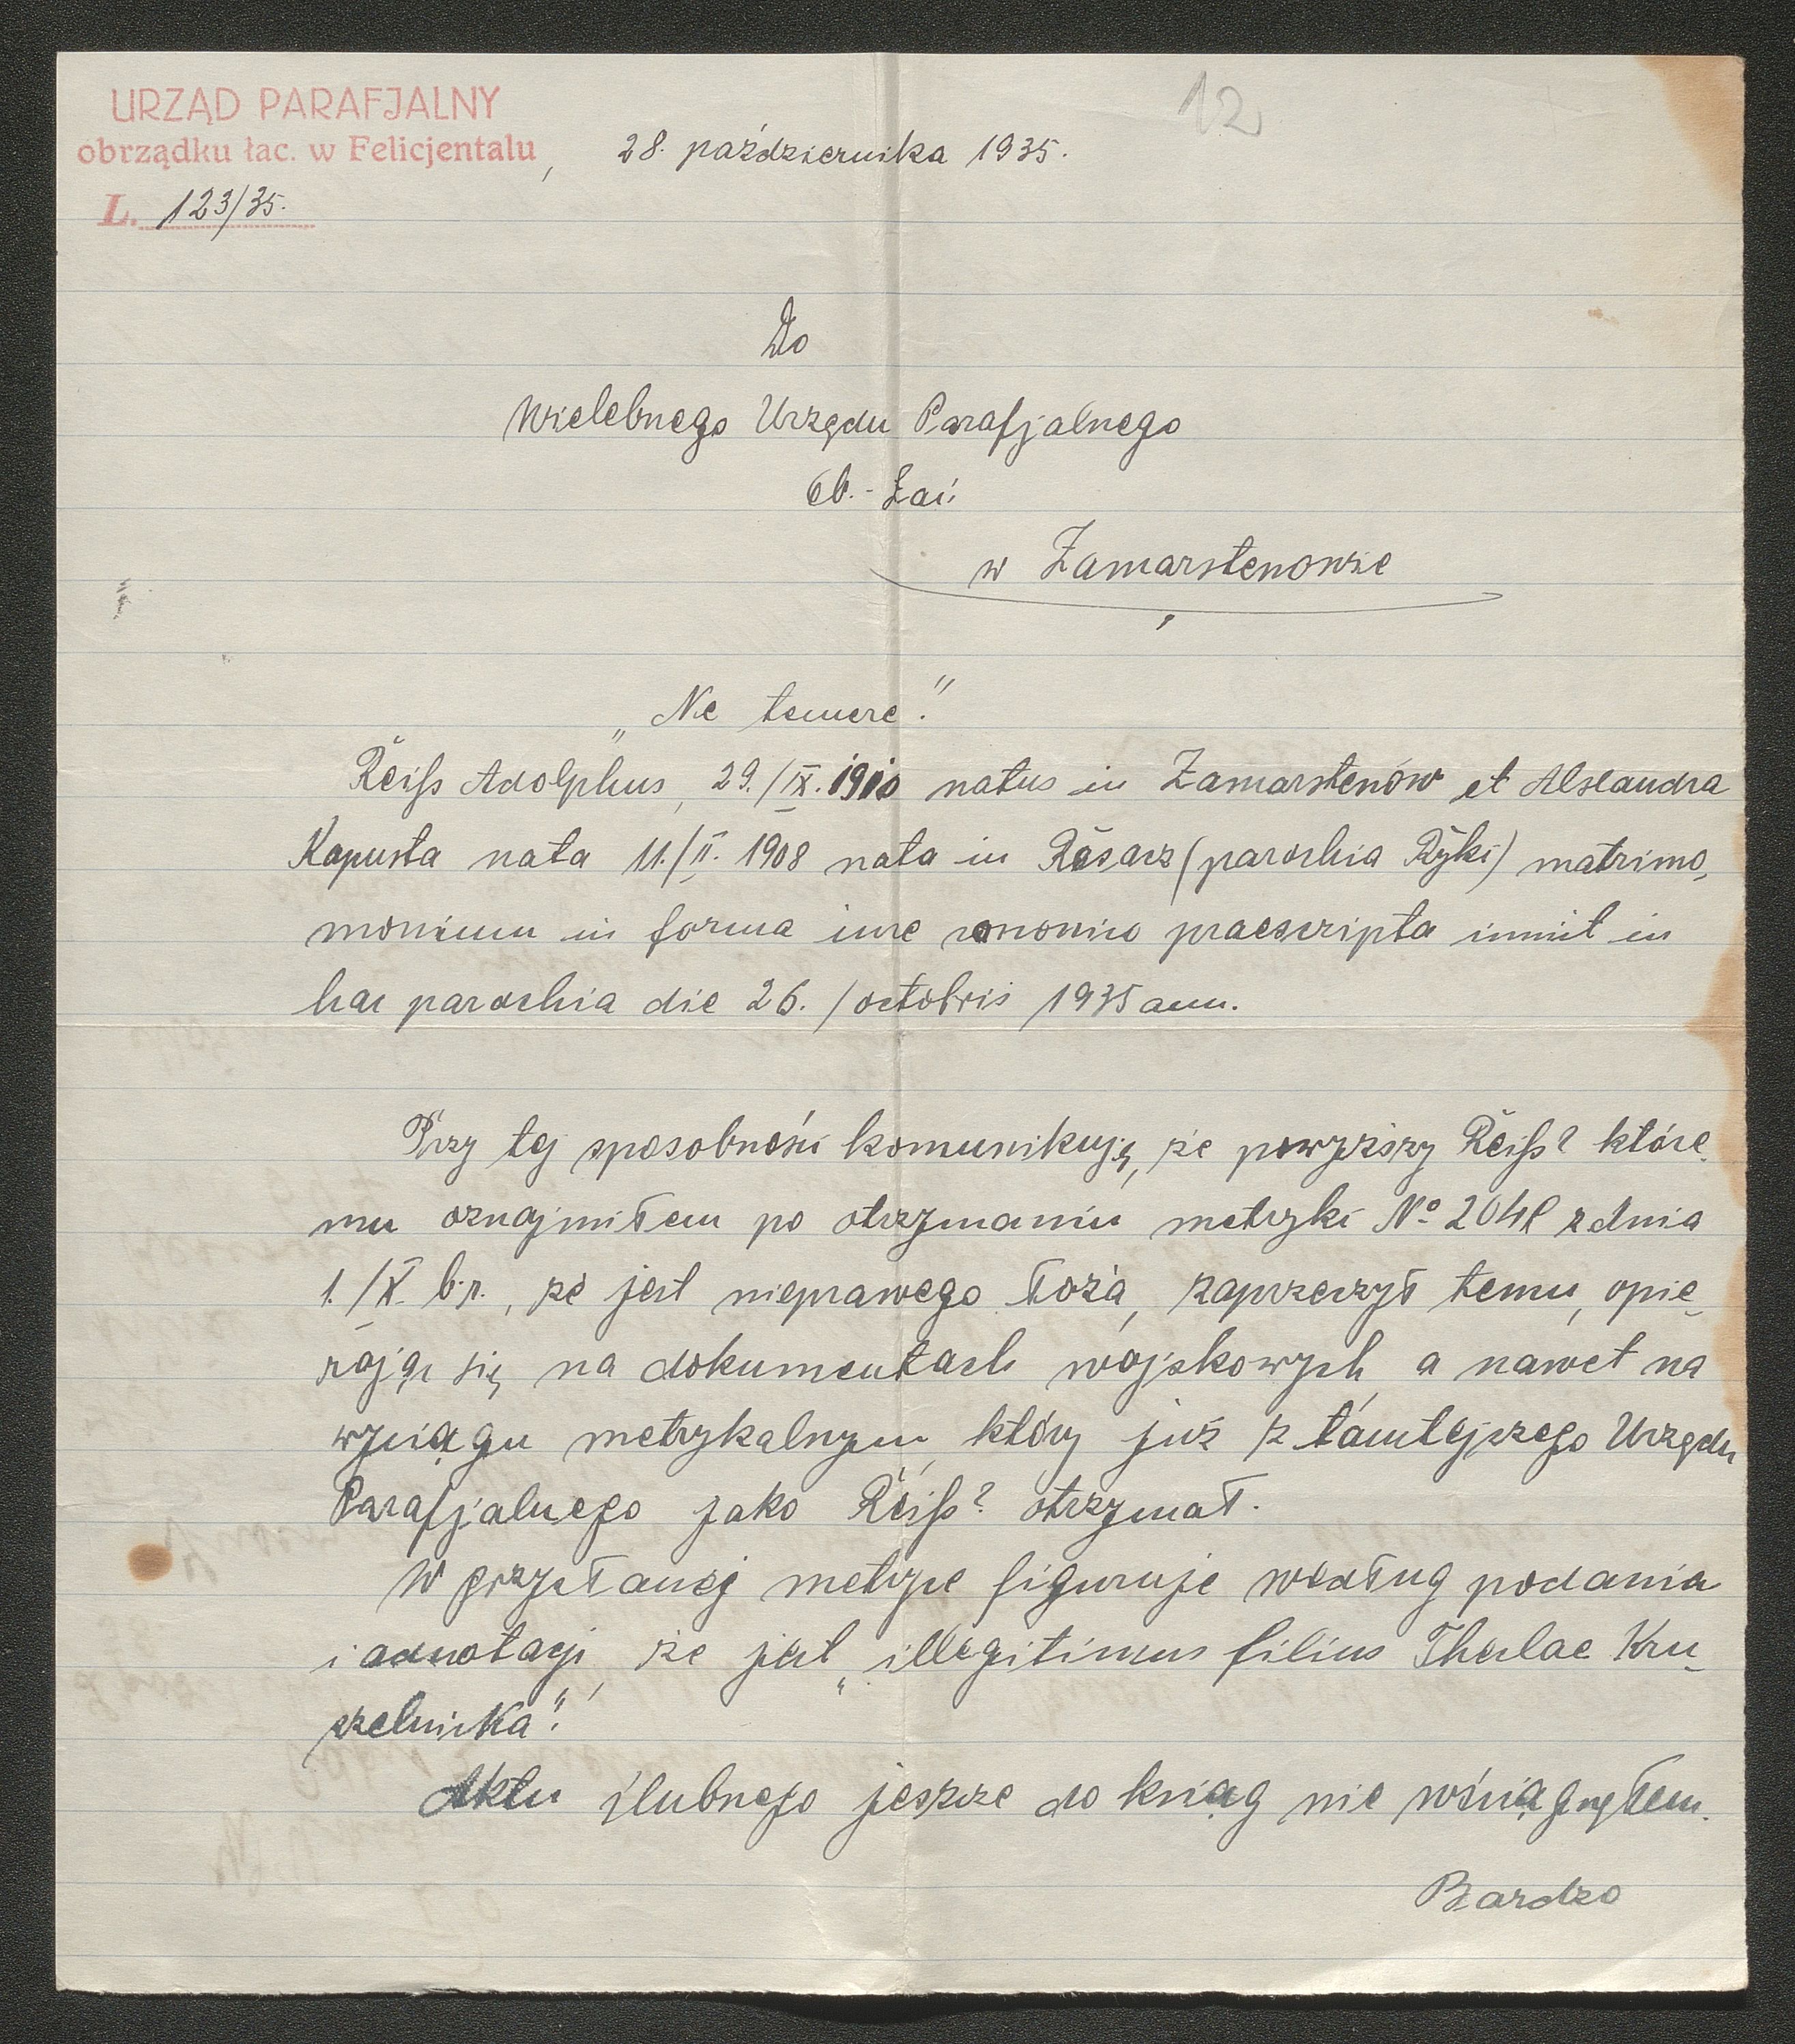 12
URZĄD PARAFJALNY
obrządku łac. w Felicjentalu, 28. października 1935.
L. 123/35.
Do
Wielebnego Urzędu Parafjalnego
Ob. - Łać.
w Zamarstenowie
„Ne temere".
Reiss Adolphus, 29./IX. 1910 natus in Zamarstenów et Alexandra
Kapusta nata 11./II. 1908 nata in (parochia Ryki) matrimo,
monium in forma iure canonico praescripta iniit in
hac parochia die 26./octobris 1935 ann.
Przy tej sposobności komunikuję, że powyższy Reiss? które,
mu oznajmiłem po otrzymaniu metryki No 204 z dnia
1./X. b.r., że jest nieprawego łoża, zaprzeczył temu, opie,
rając się na dokumentach wojskowych a nawet na
wyciągu metrykalnym, który już z tamtejszego Urzędu
Parafjalnego jako Reiss? otrzymał.
W przysłanej metryce figuruje według podania
i adnotacji, że jest „illegitimus filius Theclae Kru-
szelnicka".
Aktu ślubnego jeszcze do ksiąg nie wciągnąłem.
Bardzo